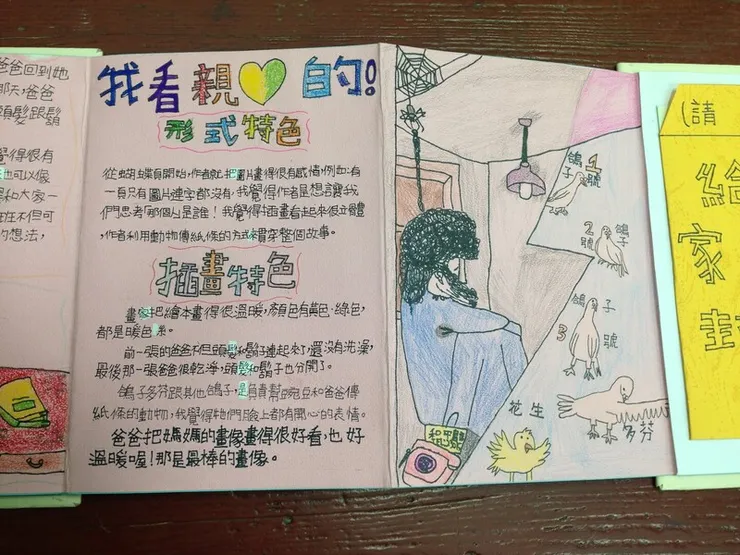 爸爸回到她
那天，爸爸
頭髮跟鬍
覺得很有
也可以像
和大家一
在不但可
的想法，
我看親的！
形式特色
從蝴蝶頁開始，作者就把圖片畫得很有感情，例如：有
一頁只有圖片連字都沒有，我覺得作者是想讓我
們思考那個人是誰！我覺得插畫看起來很立體
，作者利用動物傳紙條的方式貫穿整個故事。
插畫特色
畫家把繪本畫得很溫暖，顏色有黃色、綠色，
都是暖色系。
前一張的爸爸不但頭髮和鬍子連起來了，還沒有洗澡，
最後那一張爸爸很乾淨，頭髮和鬍子也分開了。
鴿子多芬跟其他鴿子，是負責幫豌豆和爸爸傳
紙條的動物，我覺得牠們臉上都有開心的表情。
爸爸把媽媽的畫像畫得很好看，也好
溫暖喔！那是最棒的畫像。
鴿子1號
2號鴿子
鴿子3號
花生
多芬
(請
給
家